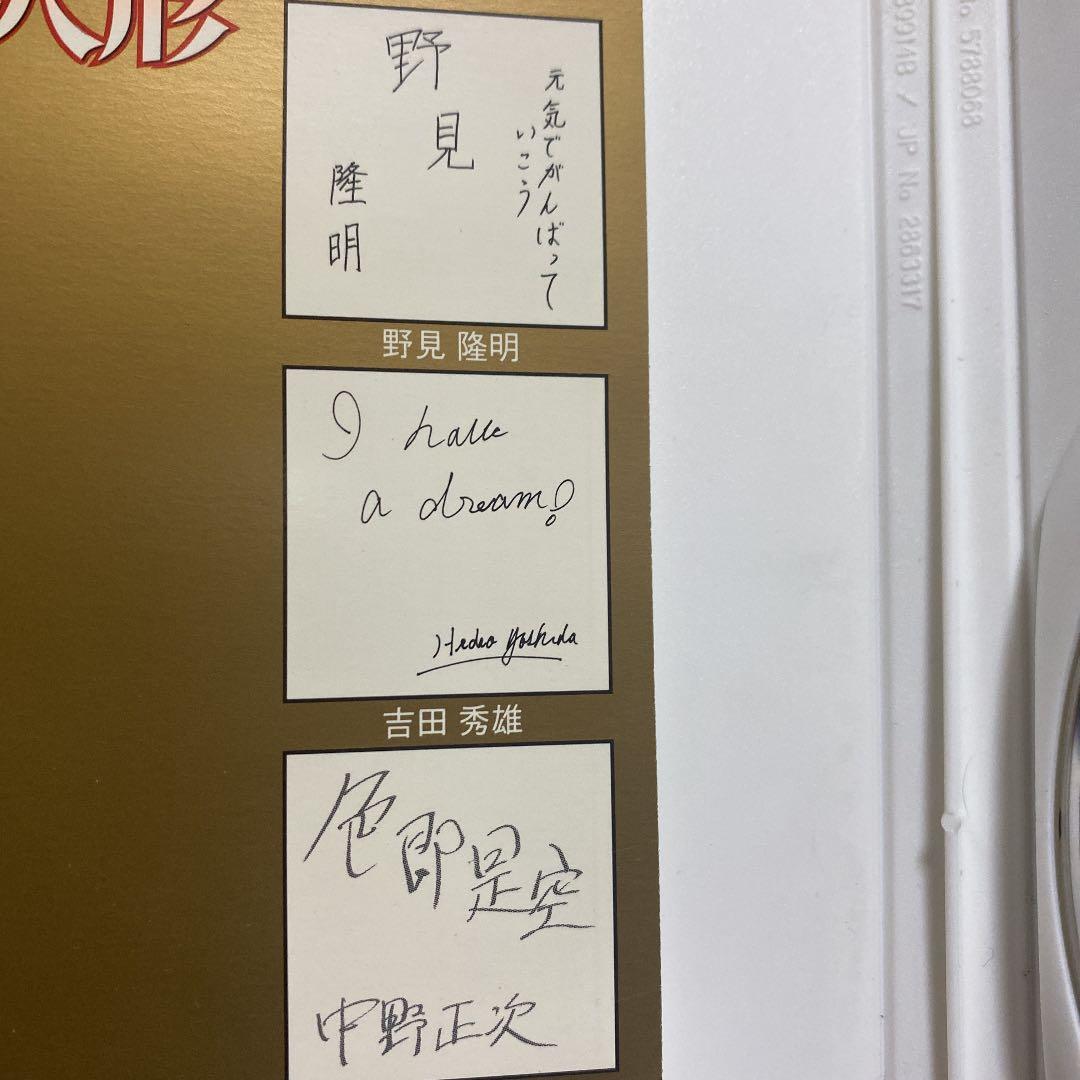 人形
野見
隆明
元気でがんばって
いこう
野見 隆明
I have
a dream!
Hideo Yoshida
吉田 秀雄
色即是空
中野正次
No 5788068
JP No 2863317